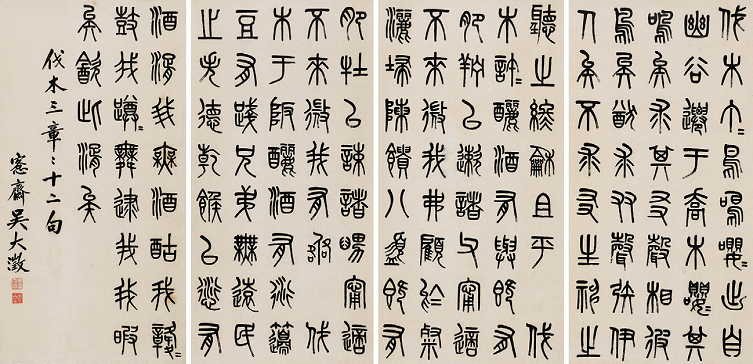 伐木丁〻鳥鳴嚶〻出自
幽谷遷于喬木嚶〻其
鳴矣求其友聲相彼
鳥矣猷求友聲矧伊
人矣不求友生神之
聽之終龢且平伐
木許〻釃酒有與既有
肥羜以速諸父寧適
不來微我弗顧於粲
灑埽陳饋八簋既有
肥牡以速諸舅寧適
不來微我有咎伐
木于阪釃酒有衍籩
豆有踐兄弟無遠民
之失德乾餱以愆有
酒湑我無酒酤我竷〻
鼓我蹲〻舞逮我我暇
矣飲此湑矣
伐木三章〻十二句
愙齋吳大澂